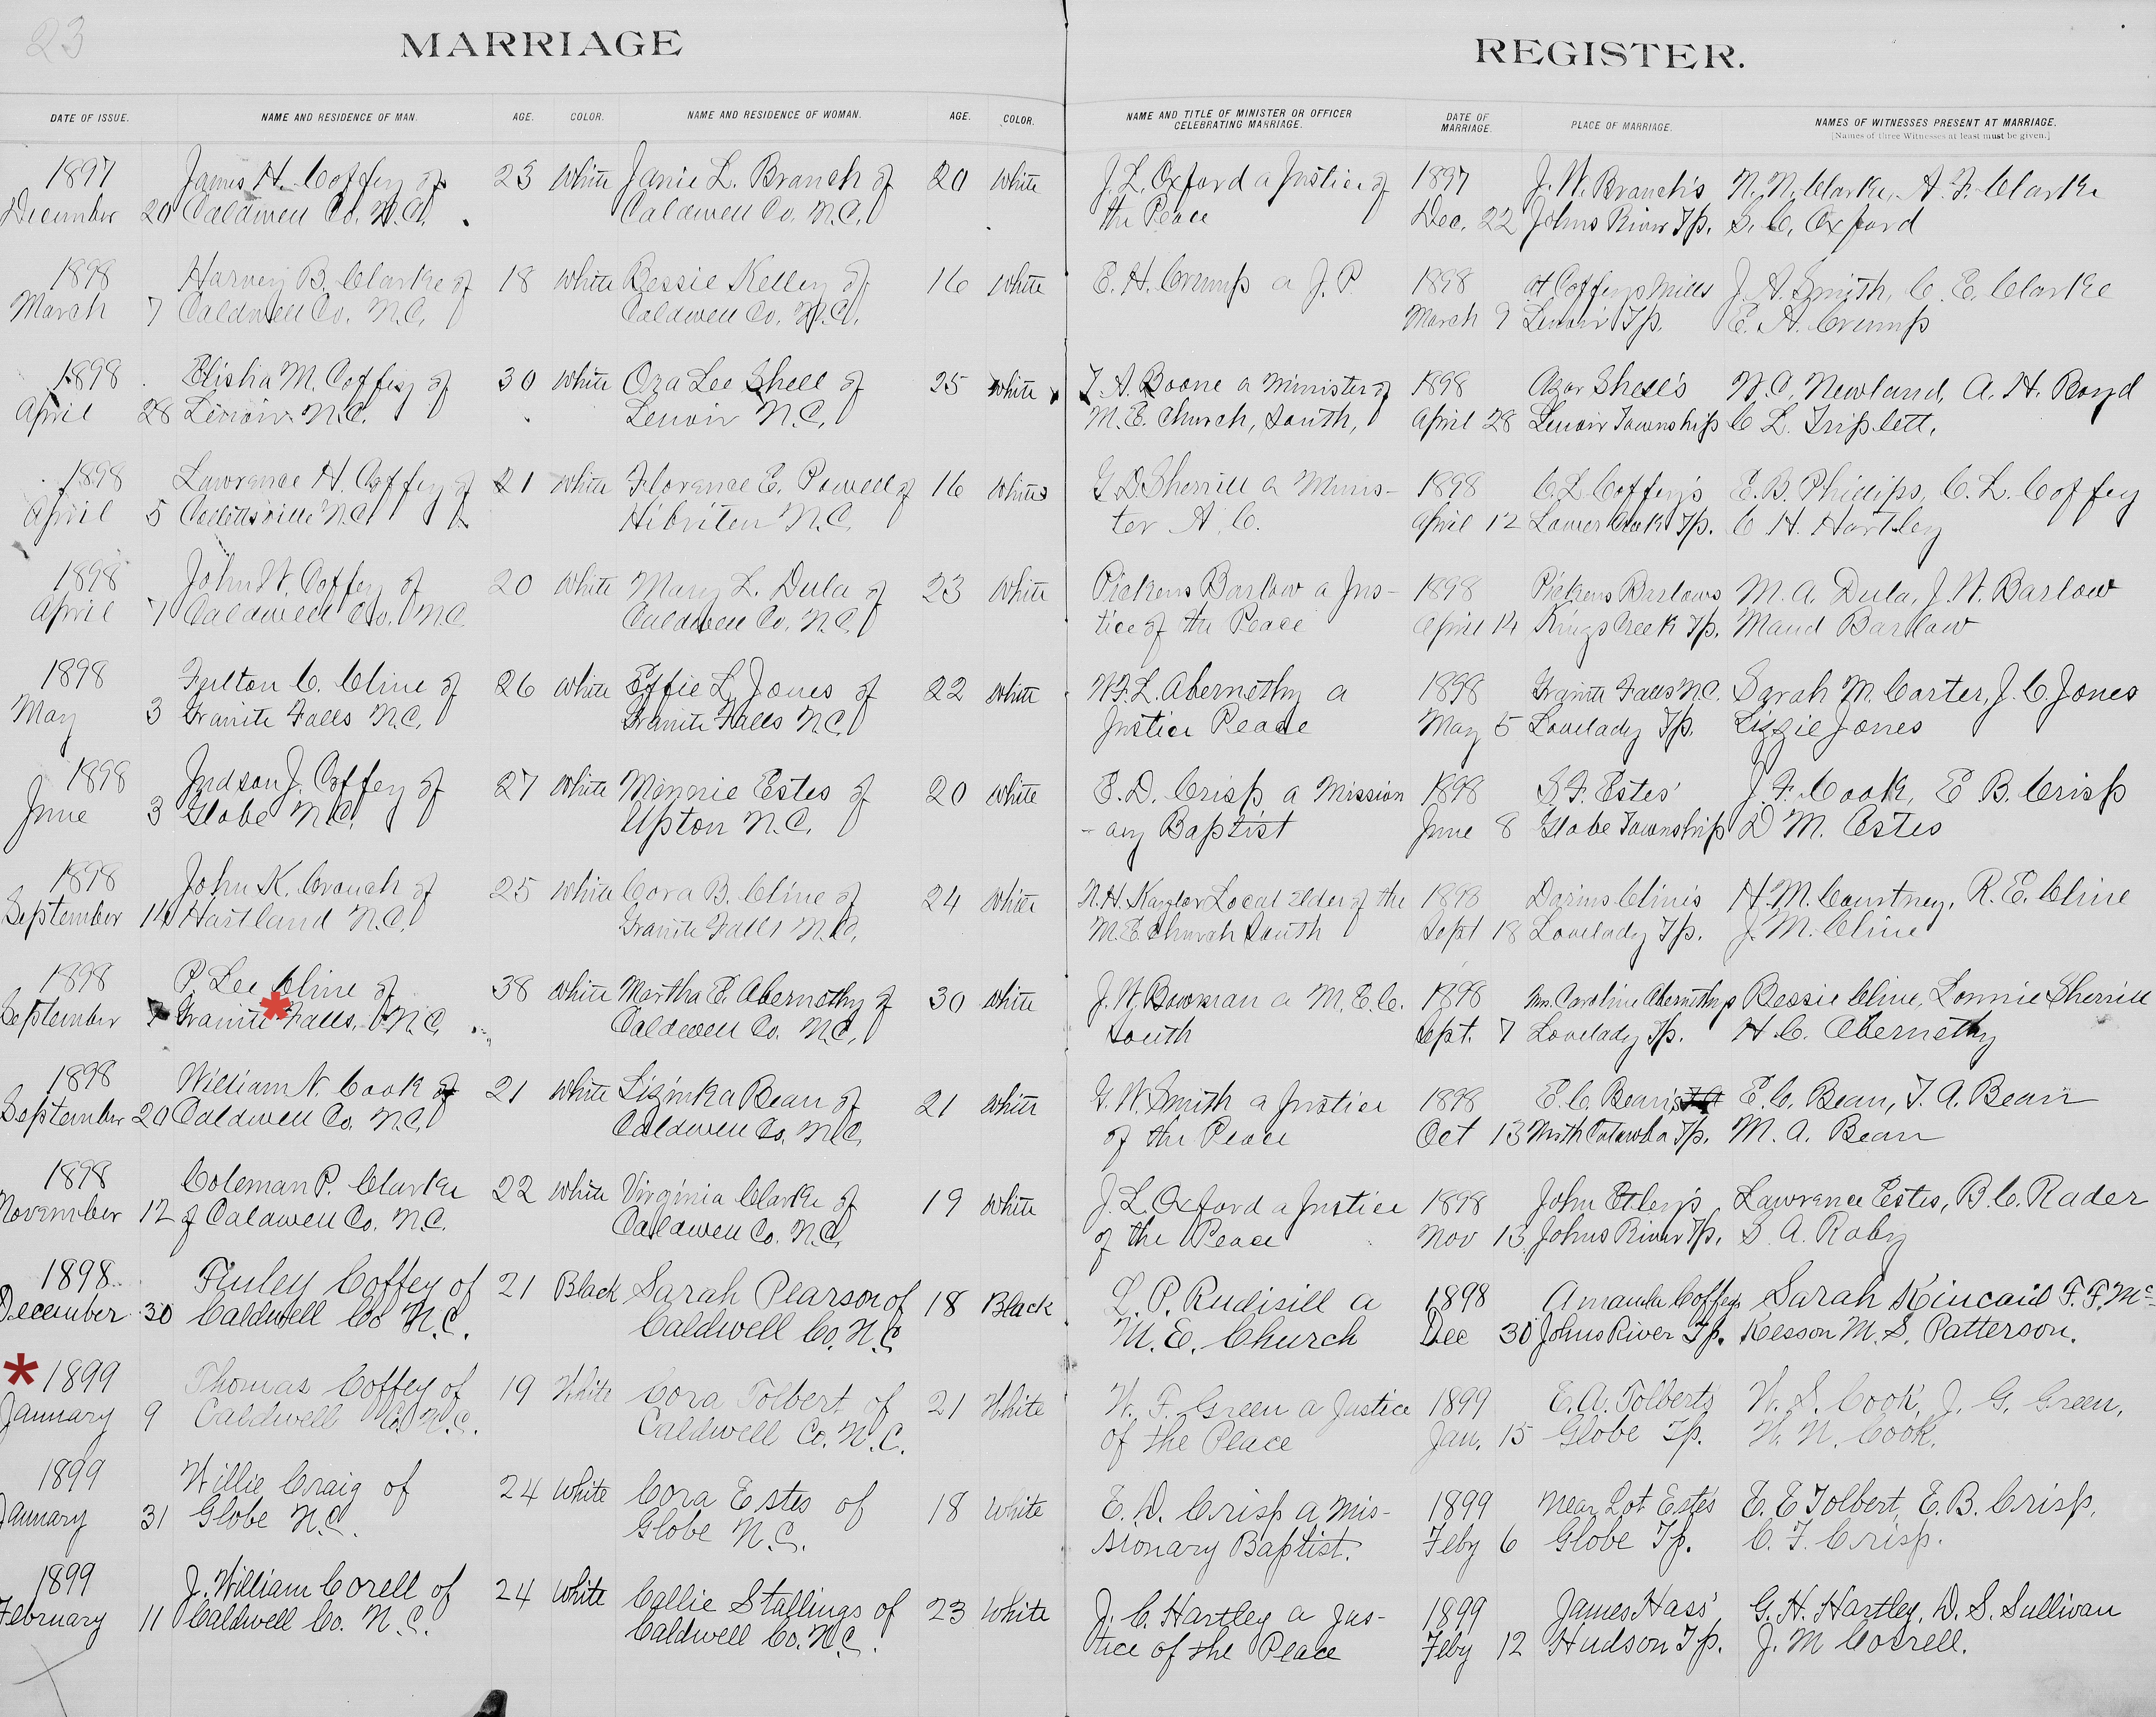 23
MARRIAGE REGISTER.
DATE OF ISSUE. NAME AND RESIDENCE OF MAN. AGE. COLOR. NAME AND RESIDENCE OF WOMAN. AGE. COLOR. NAME AND TITLE OF MINISTER OR OFFICER CELEBRATING MARRIAGE. DATE OF MARRIAGE. PLACE OF MARRIAGE. NAMES OF WITNESSES PRESENT AT MARRIAGE.
[Names of three Witnesses at least must be given.]
1897 James H. Coffey of 23 White Janie L. Branch of 20 White J. L. Oxford a Justice of 1897 J. W. Branch's N. N. Clarke, A. F. Clarke
December 20 Caldwell Co. N.C. Caldwell Co. N.C. the Peace Dec. 22 Johns River Tp. S. C. Oxford
1898 Harvey B. Clarke of 18 White Bessie Kelley of 16 White E. H. Crump a J. P 1898 at Coffeys Mills J. A. Smith, C. E. Clarke
March 7 Caldwell Co. N.C. Caldwell Co. N.C. March 9 Lenoir Tp. E. H. Crump
1898 Elisha M. Coffey of 30 White Ora Lee Shell of 25 White T. A. Boone a Minister of 1898 Azor Shell's W. C. Newland, A. H. Boyd
April 28 Lenoir N.C. Lenoir N.C. M. E. Church, South, April 28 Lenoir Township C. L. Triplett.
1898 Lawrence H. Coffey of 21 White Florence E. Powell of 16 White G. D. Sherrill a Minis- 1898 C. L. Coffey's E. B. Phillips, C. L. Coffey
April 5 N.C. Hibriten N.C. ter A. C. April 12 Lower Creek Tp. C. H. Hartley
1898 John W. Coffey of 20 White Mary L. Dula of 23 White Pickens Barlow a Jus- 1898 Pickens Barlows M. A. Dula, J. W. Barlow
April 7 Caldwell Co. N.C. Caldwell Co. N.C. tice of the Peace April 14 Kings Creek Tp. Maud Barlow
1898 Fulton C. Cline of 26 White Effie L. Jones of 22 White W. F. L. Abernethy a 1898 Granite Falls N.C. Sarah M. Carter, J. C. Jones
May 3 Granite Falls N.C. Granite Falls N.C. Justice Peace May 5 Lovelady Tp. Lizzie Jones
1898 Judson J. Coffey of 27 White Minnie Estes of 20 White E. D. Crisp a Mission 1898 S. F. Estes' J. F. Cook, E B. Crisp
June 3 Globe N.C. Upton N.C. - ary Baptist June 8 Globe Township D M. Estes
1898 John K. Crouch of 25 White Cora B. Cline of 24 White Local Elder of the 1898 Darius Cline's H. M. Courtney, R. E. Cline
September 14 Hartland N.C. Granite Falls N.C. M. E Church South Sept 18 Lovelady Tp. J. M. Cline
1898 P. Lee Cline of 38 White Martha E. Abernethy of 30 White J. W. Bowman a M. E. C. 1898 Mrs. Caroline Abernethys Bessie Cline, Lonnie Sherrill
September 7 Granite Falls, N.C. Caldwell Co. N.C. South Sept. 7 Lovelady Tp. H. C. Abernethy
1898 William N. Cook of 21 White Lizinka Bean of 21 White G. W. Smith a Justice 1898 E. C. Bean's E. C. Bean, T. A. Bean
September 20 Caldwell Co. N.C. Caldwell Co. N.C. of the Peace Oct 13 North Catawba Tp. M. A. Bean
1898 Coleman P. Clarke 22 White Virginia Clarke of 19 White J. L. Oxford a Justice 1898 John Lawrence Estes, B. C. Rader
November 12 of Caldwell Co. N.C. Caldwell Co. N.C. of the Peace Nov 13 Johns River Tp. S. A. Raby
1898 Finley Coffey of 21 Black Sarah Pearson of 18 Black L. P. Rudisill a 1898 Amanda Coffeys Sarah Kincaid F. F. Mc-
December 30 Caldwell Co N.C. Caldwell Co. N.C. M. E. Church Dec 30 Johns River Tp. Kesson M. S. Patterson.
* 1899 Thomas Coffey of 19 White Cora Tolbert of 21 White W. F. Green a Justice 1899 E. A. Tolberts W. S. Cook, J. G. Green,
January 9 Caldwell Co. N.C. Caldwell Co. N.C. of the Peace Jan. 15 Globe Tp. W. N. Cook.
1899 Willie Craig of 24 White Cora Estes of 18 White E. D. Crisp a Mis- 1899 Near Lot Estes E. E Tolbert, E. B. Crisp,
January 31 Globe N.C. Globe N.C. sionary Baptist. Feby 6 Globe Tp. C. F. Crisp.
1899 J. William Corell of 24 White Callie Stallings of 23 White J. C. Hartley a Jus- 1899 James Hass' G. H. Hartley, D. S. Sullivan
February 11 Caldwell Co. N.C. Caldwell Co. N.C. tice of the Peace Feby 12 Hudson Tp. J. M Correll.